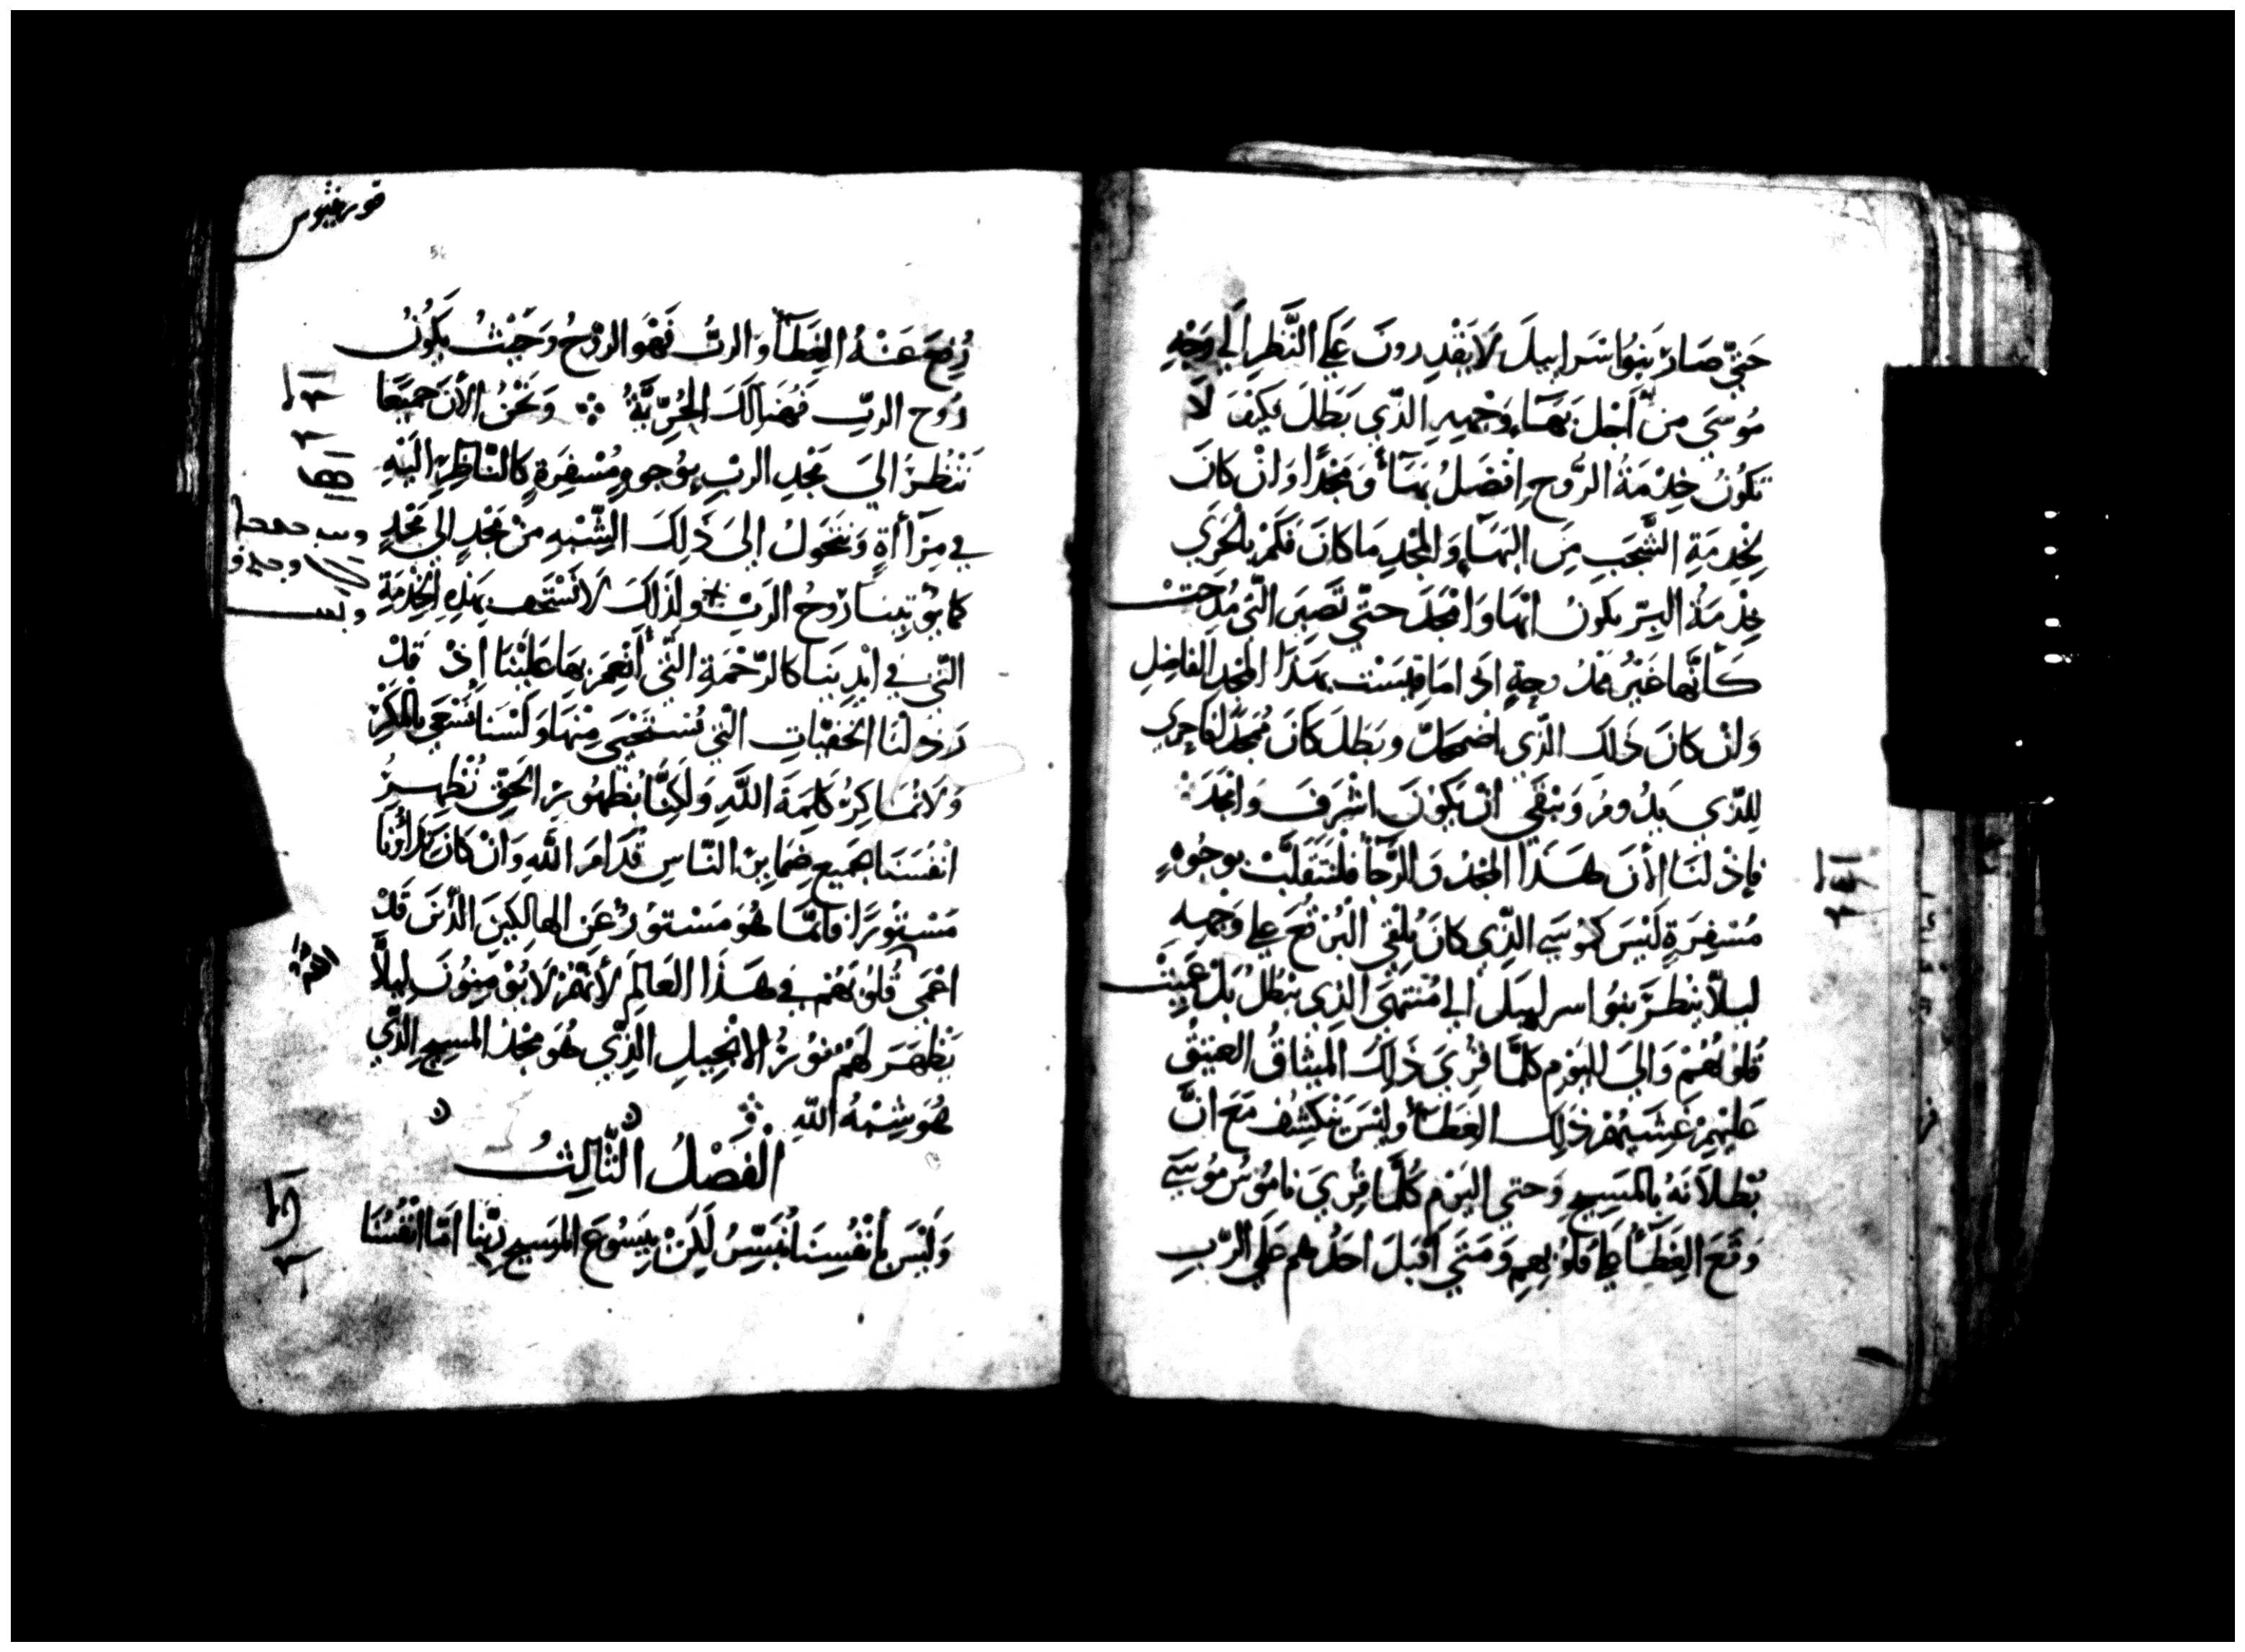 حَتّي صَارَ بَنُوا اسْرَاييلَ لاَ يَقْدِرونَ عَلَي النَّظَرِ الَي وَجْهِ
مُوسَي مِنْ اَجْلَ بَهَآءِ وَجْهِهِ الَّذِي بَطَلَ فكَيْفَ لاَ
تَكُونُ خِدْمَةُ الرُّوحِ افْضَلُ بَهَآءً وَمَجْدًا وَانْ كَانَ
لِخِدمَةِ الشَّجَبِ مِنَ البَهَآءِ وَالمَجْدِ مَا كانَ فَكَمْ بِالْحَرِي
خِدْمَةُ البِرّ يكونُ ابْهَا وَامْجَدَ حتّي تَصِيرَ الّتي مُدِحَتْ
كَأنَّهَا غَيْرُ مَمْدُوحةٍ اذَي امَا قِيسَتْ بِهَذَا المَجْدِ الفَاضِلِ
وَانْ كانَ ذَلكَ الّذِي اضمحَلّ وبَطَلَ كَانَ مُمَجَّدًا فَاحري
لِلّذي يَدُومُ وَيَبْقَي انْ يَكوْنَ اشْرَفَ وَامْجَدَ
فإذْ لنَا الأنَ هَذا المَجْدُ وَالرَّجَآءُ فَلْنَتَقَلَّبْ بوجُوهٍ
مُسْفِرَةٍ لَيْسَ كمُوسَي الَّذِي كانَ يُلْقِي البُرْقُعَ عَلي وَجْهِهِ
ليلاّ يَنْظُرَ بَنُوا اسراييلَ الي مُنْتَهَي الَّذِي يَبْطُلُ بَلْ عَمِيَتْ
قُلوبُهُمْ وَالَي اليَوْمِ كلَّمَا قُرِيَ ذَلكَ المِيثاقُ العَتِيقُ
عَليْهِمْ غَشَيهُمْ ذَلِك الغِطَآءُ وَلَيْسَ يَنْكشِفُ مَعَ انَّ
بُطْلاَنَهُ بِالْمَسِيحِ وَحتي اليَوْمِ كُلّمَا قُرِيَ نَامُوسُ مُوسَي
وَقَعَ الغِطَآءُ عَلَي قلُوبِهِمِ وَمَتَي اَقْبَلَ احَدُهم عَلَي الرَّبِ
قورنثيوس
رُفِعَ عَنْهُ الغِطَآءُ وَالربُّ فَهُوَ الرُّوْحُ وَحَيْثُ يَكُونُ
رُوح الرَبِّ فَهُنَالَكَ الحُرّيَّةُ وَنَحْنُ الأنَ جَميعًا
نَنْظُرُ اليَ مَجْدِ الربِّ بِوُجوهٍ مُسْفِرَةٍ كَالنّاظِرِ اليْهِ
في مِرْآأةٍ وَنَتَحَوّلُ الىَ ذَلِكَ الشَّبْهِ مِنْ مَجْدٍ الي مَجْدٍ
كما يُوْتِينَا رُوحُ الرَبّ وَلِذَلكَ لاَ نَسْتَعْفِ بهَذِهِ الخِدْمَةِ
الّتي في ايْدِينَا كالرّحْمَةِ الّتي أُنْعِمَ بِهَا عَلَيْنَا اذْ قَدْ
رَذَلْنَا الخَفِيَّاتِ التّي يُسْتَحْيَي مِنْهَا وَلَسْنَا نَسْعَي بالمَكْرِ
وَلا نُمَاكِرُ كَلِمَةَ اللَّهِ وَلَكِنَّا بِظُهُورِ الحَقّ نُظْهِرُ
انْفُسَنَا لجَمِيعِ ضَمَايِرِ النَّاسِ قدَامَ اللَّهِ وَانْ كَانَ
مَسْتُورًا فَانَّمَا هُوَ مَسْتورٌ عَنِ الهالِكينَ الّذينَ قَدْ
اعْمَي قُلُوبَهُمْ في هَذَا العَالمِ لأنّهُمْ لاَ يُوْمِنوُنَ لِيلاَّ
يَظْهَرَ لَهُمْ نُورُ الانْجِيلِ الَّذِي هُوَ مَجْدُ المسِيحِ الَّذِي
هُوَ شِبْهُ اللَّهِ
الْفَصْلُ الثَّالِثُ
وَلَيْسَ بأنْفُسِنَا نُبَشِّرُ لَكِنْ بِيَسُوعَ المَسِيحِ رَبّنِا امّا انْفُسُنَا